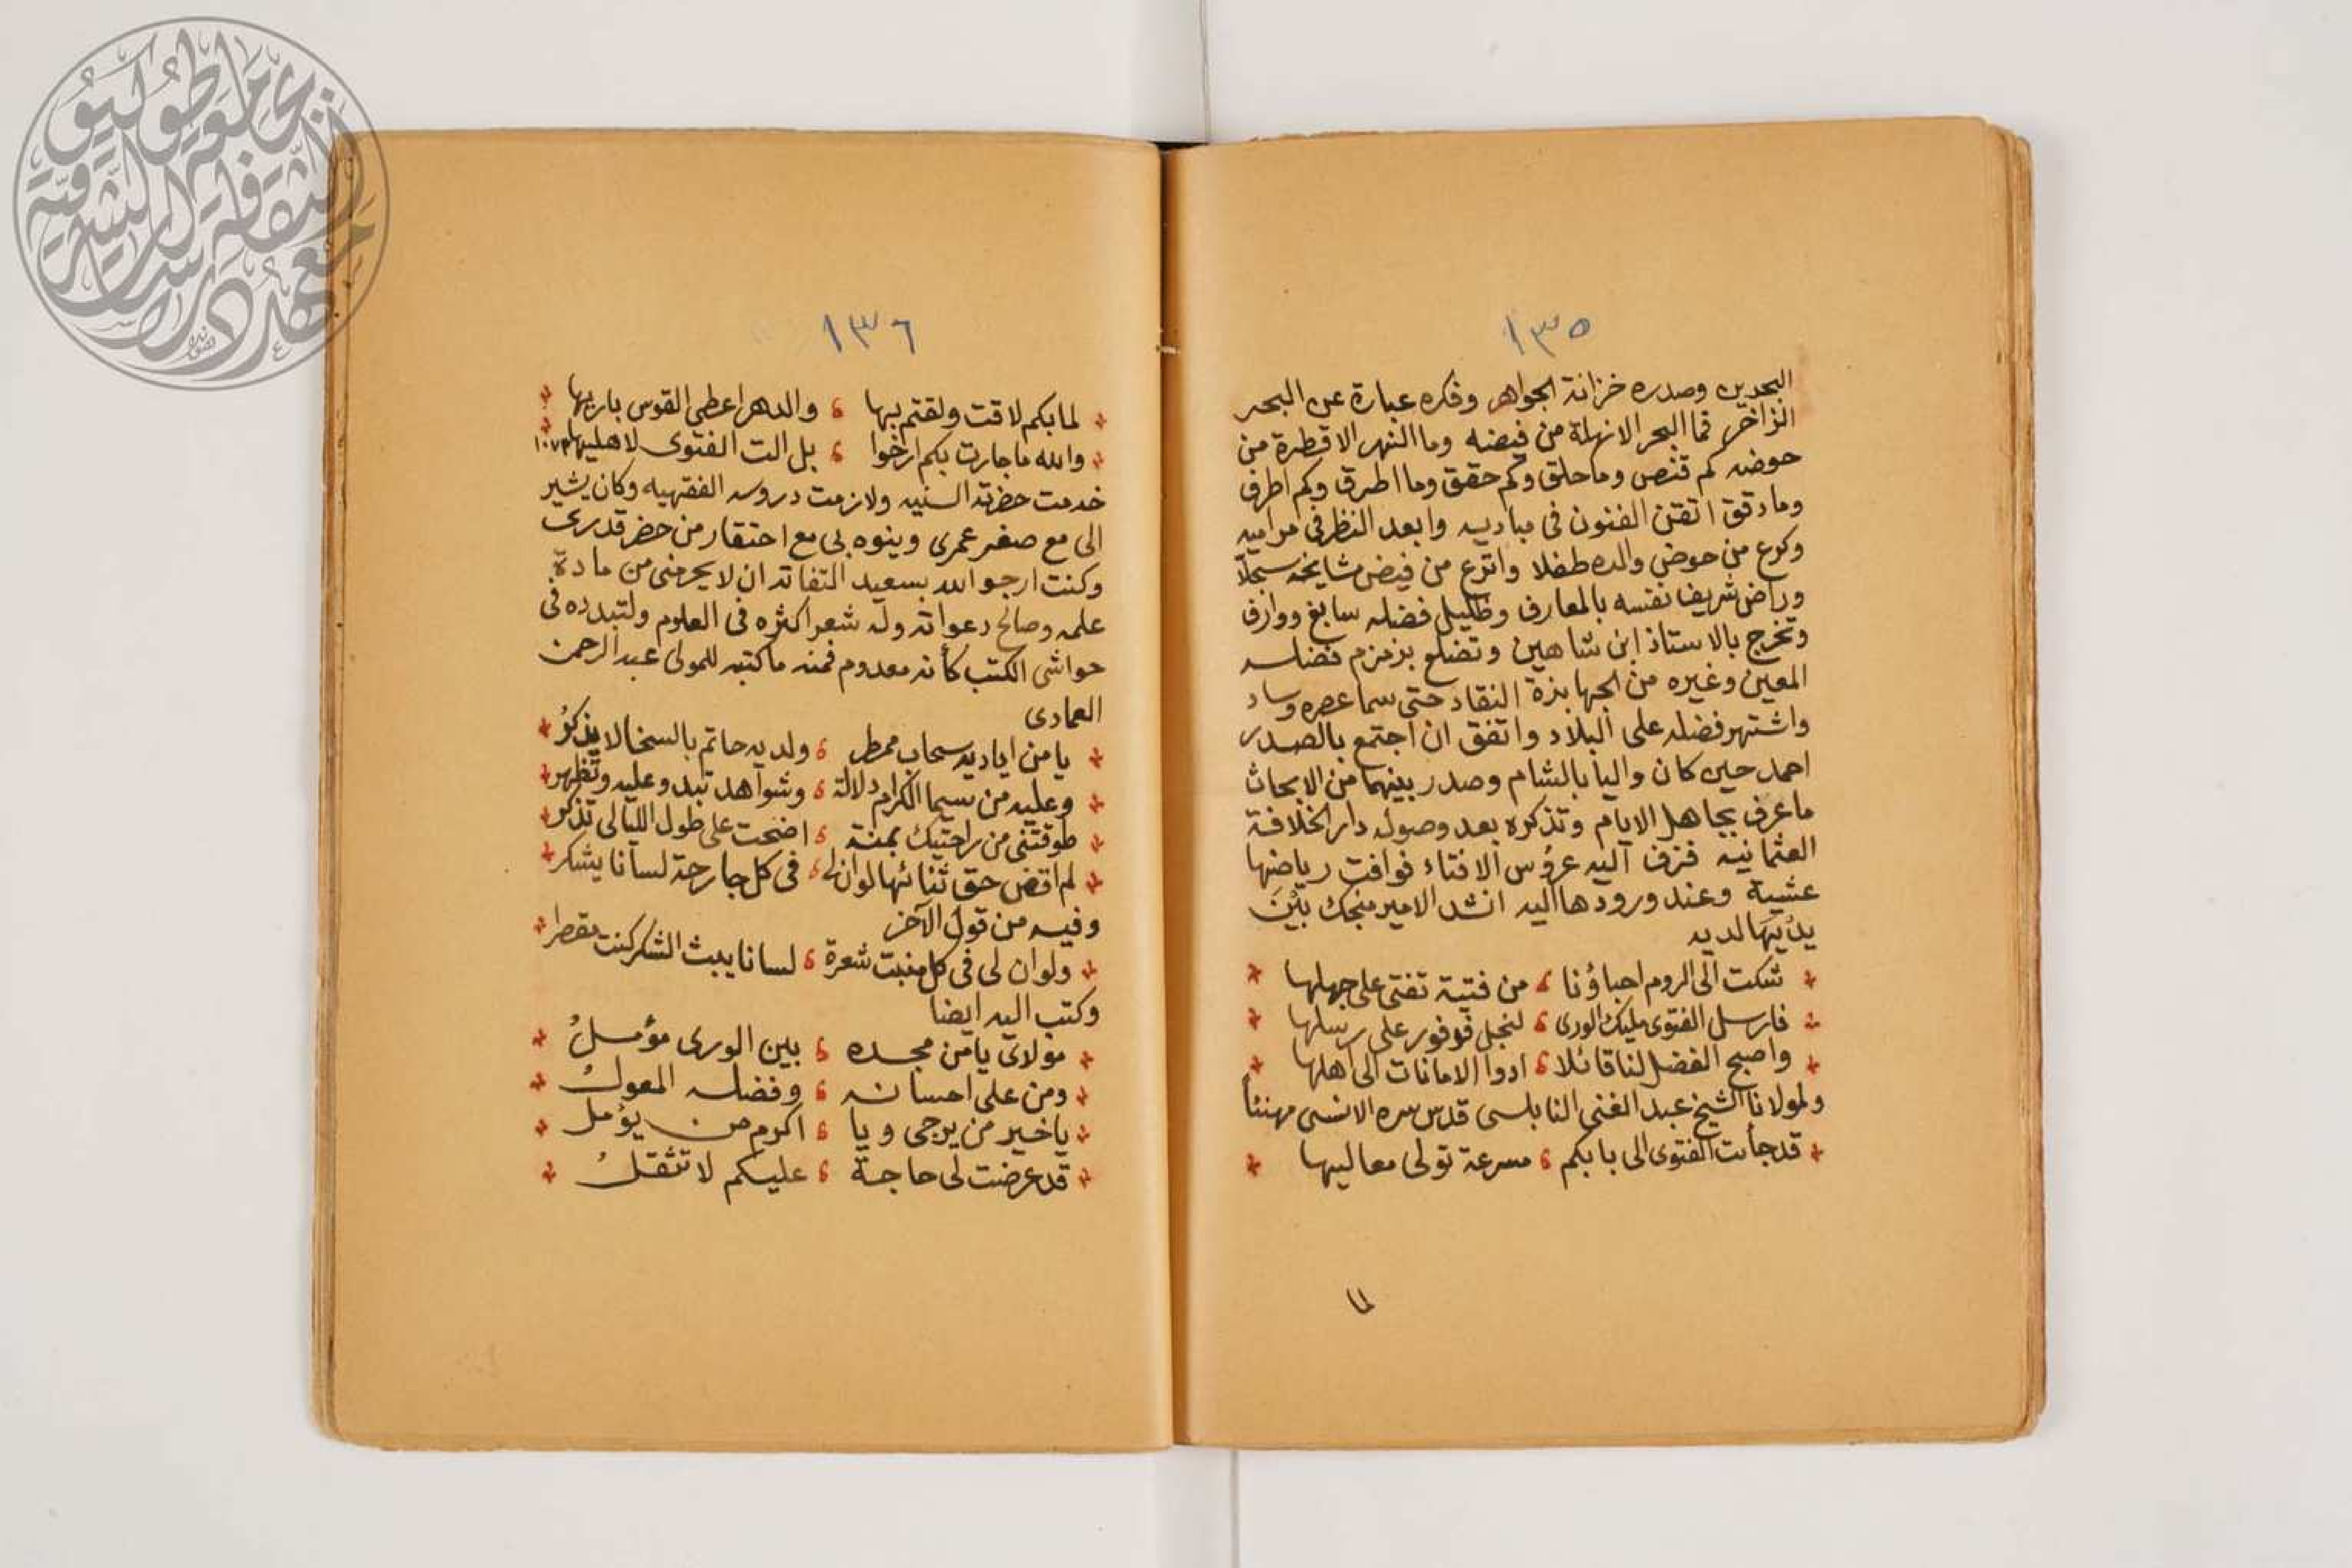 ١٣٥
البحدين وصدره خزانة الجواهر وفكره عبارة عن البحر
الزاخر فما البحر الانهلة من فيضه وما النهر الا قطرة من
حوضه كم قنص وما حلق وكم حقق وما اطرق وكم اطرق
وما دقق اتقن الفنون فى مباديه وابعد النظر فى مراميه
وكرع من حوض والده طفلا واترع من فيض مشايخه سجلا
وراض شريف نفسه بالمعارف وظليل فضله سابغ ووارف
وتخرج بالاستاذ ابن شاهين وتضلع بزمزم فضله
المعين وغيره من الجهابذة النقاد حتى سما عصره وساد
واشتهر فضله على البلاد واتفق ان اجتمع بالصدر
احمد حين كان واليا بالشام وصدر بينهما من الابحاث
ما عرف بجاهل الايام وتذكره بعد وصوله دار الخلافة
العثمانيه فزف اليه عروس الافتاء فوافت رياضها
عشية وعند ورودها اليه انشد الامير منجك بين
يديها لديه
شكت الى الروم احباؤنا من فتية تفتى على جهلها
فارسل الفتوى مليك الورى لنجل فرفور على رسلها
واصبح الفضل لنا قائلا ادوا الامانات الى اهلها
ولمولانا الشيخ عبد الغنى النابلسى قدس سره الانسى مهنئا
قد جاءت الفتوى الى بابكم مسرعة تولى معاليها
لما
١٣٦
لما بكم لاقت ولقتم بها والدهر اعطى القوس باريها
والله ما جارت بكم ارخوا بل الت الفتوى لاهليها ١٠٧٣
خدمت حضرته السنيه ولازمت دروسه الفقهيه وكان يشير
الى مع صغر عمرى وينوه بى مع احتقار من حضر قدرى
وكنت ارجو الله بسعيد التفاته ان لا يحرمنى من مادة
علمه وصالح دعواته وله شعر اكثره فى العلوم ولتبدده فى
حواشى الكتب كأنه معدوم فمنه ما كتبه للمولى عبد الرحمن
العمادى
يا من اياديه سحاب ممطر ولديه حاتم بالسخا لا يذكر
وعليه من سيما الكرام دلالة وشواهد تبدو عليه وتظهر
طوقتنى من راحتيك بمنة اضحت على طول الليالى تذكر
لم اقض حق ثنائها لو ان لى فى كل جارحة لسانا يشكر
وفيه من قول الآخر
ولو ان لى فى كل منبت شعرة لسانا يبث الشكر كنت مقصرا
وكتب اليه ايضا
مولاى يا من مجده بين الورى مؤمل
ومن على احسانه وفضله المعول
يا خير من يرجى ويا اكرم من يؤمل
قد عرضت لى حاجة عليكم لا تثقل